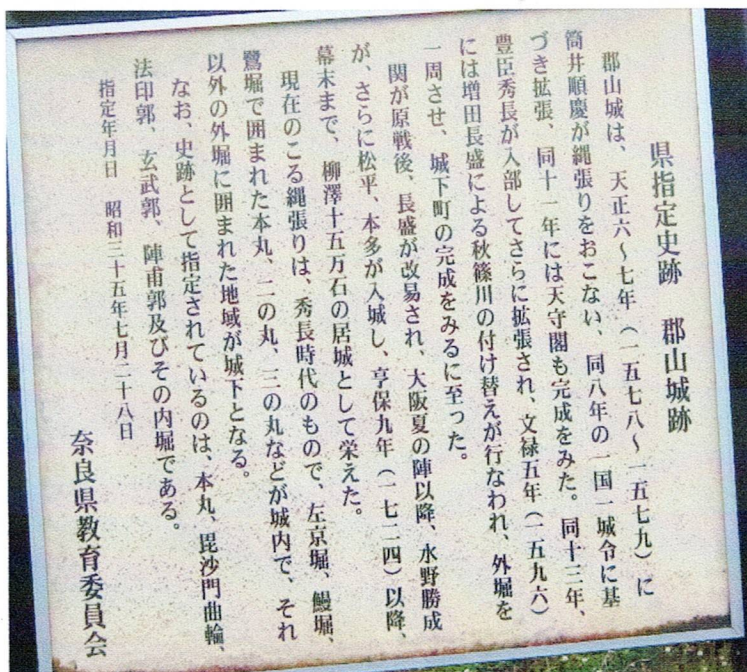 県指定史跡　郡山城跡
郡山城は、天正六～七年（一五七八～一五七九）に
筒井順慶が縄張りをおこない、同八年の一国一城令に基
づき拡張、同十一年には天守閣も完成をみた。同十三年、
豊臣秀長が入部してさらに拡張され、文禄五年（一五九六）
には増田長盛による秋篠川の付け替えが行なわれ、外堀を
一周させ、城下町の完成をみるに至った。
関が原戦後、長盛が改易され、大阪夏の陣以降、水野勝成
が、さらに松平、本多が入城し、享保九年（一七二四）以降、
幕末まで、柳澤十五万石の居城として栄えた。
現在のこる縄張りは、秀長時代のもので、左京堀、鰻堀、
鷺堀で囲まれた本丸、二の丸、三の丸などが城内で、それ
以外の外堀に囲まれた地域が城下となる。
なお、史跡として指定されているのは、本丸、毘沙門曲輪、
法印郭、玄武郭、陣甫郭及びその内堀である。
指定年月日　昭和三十五年七月二十八日
奈良県教育委員会